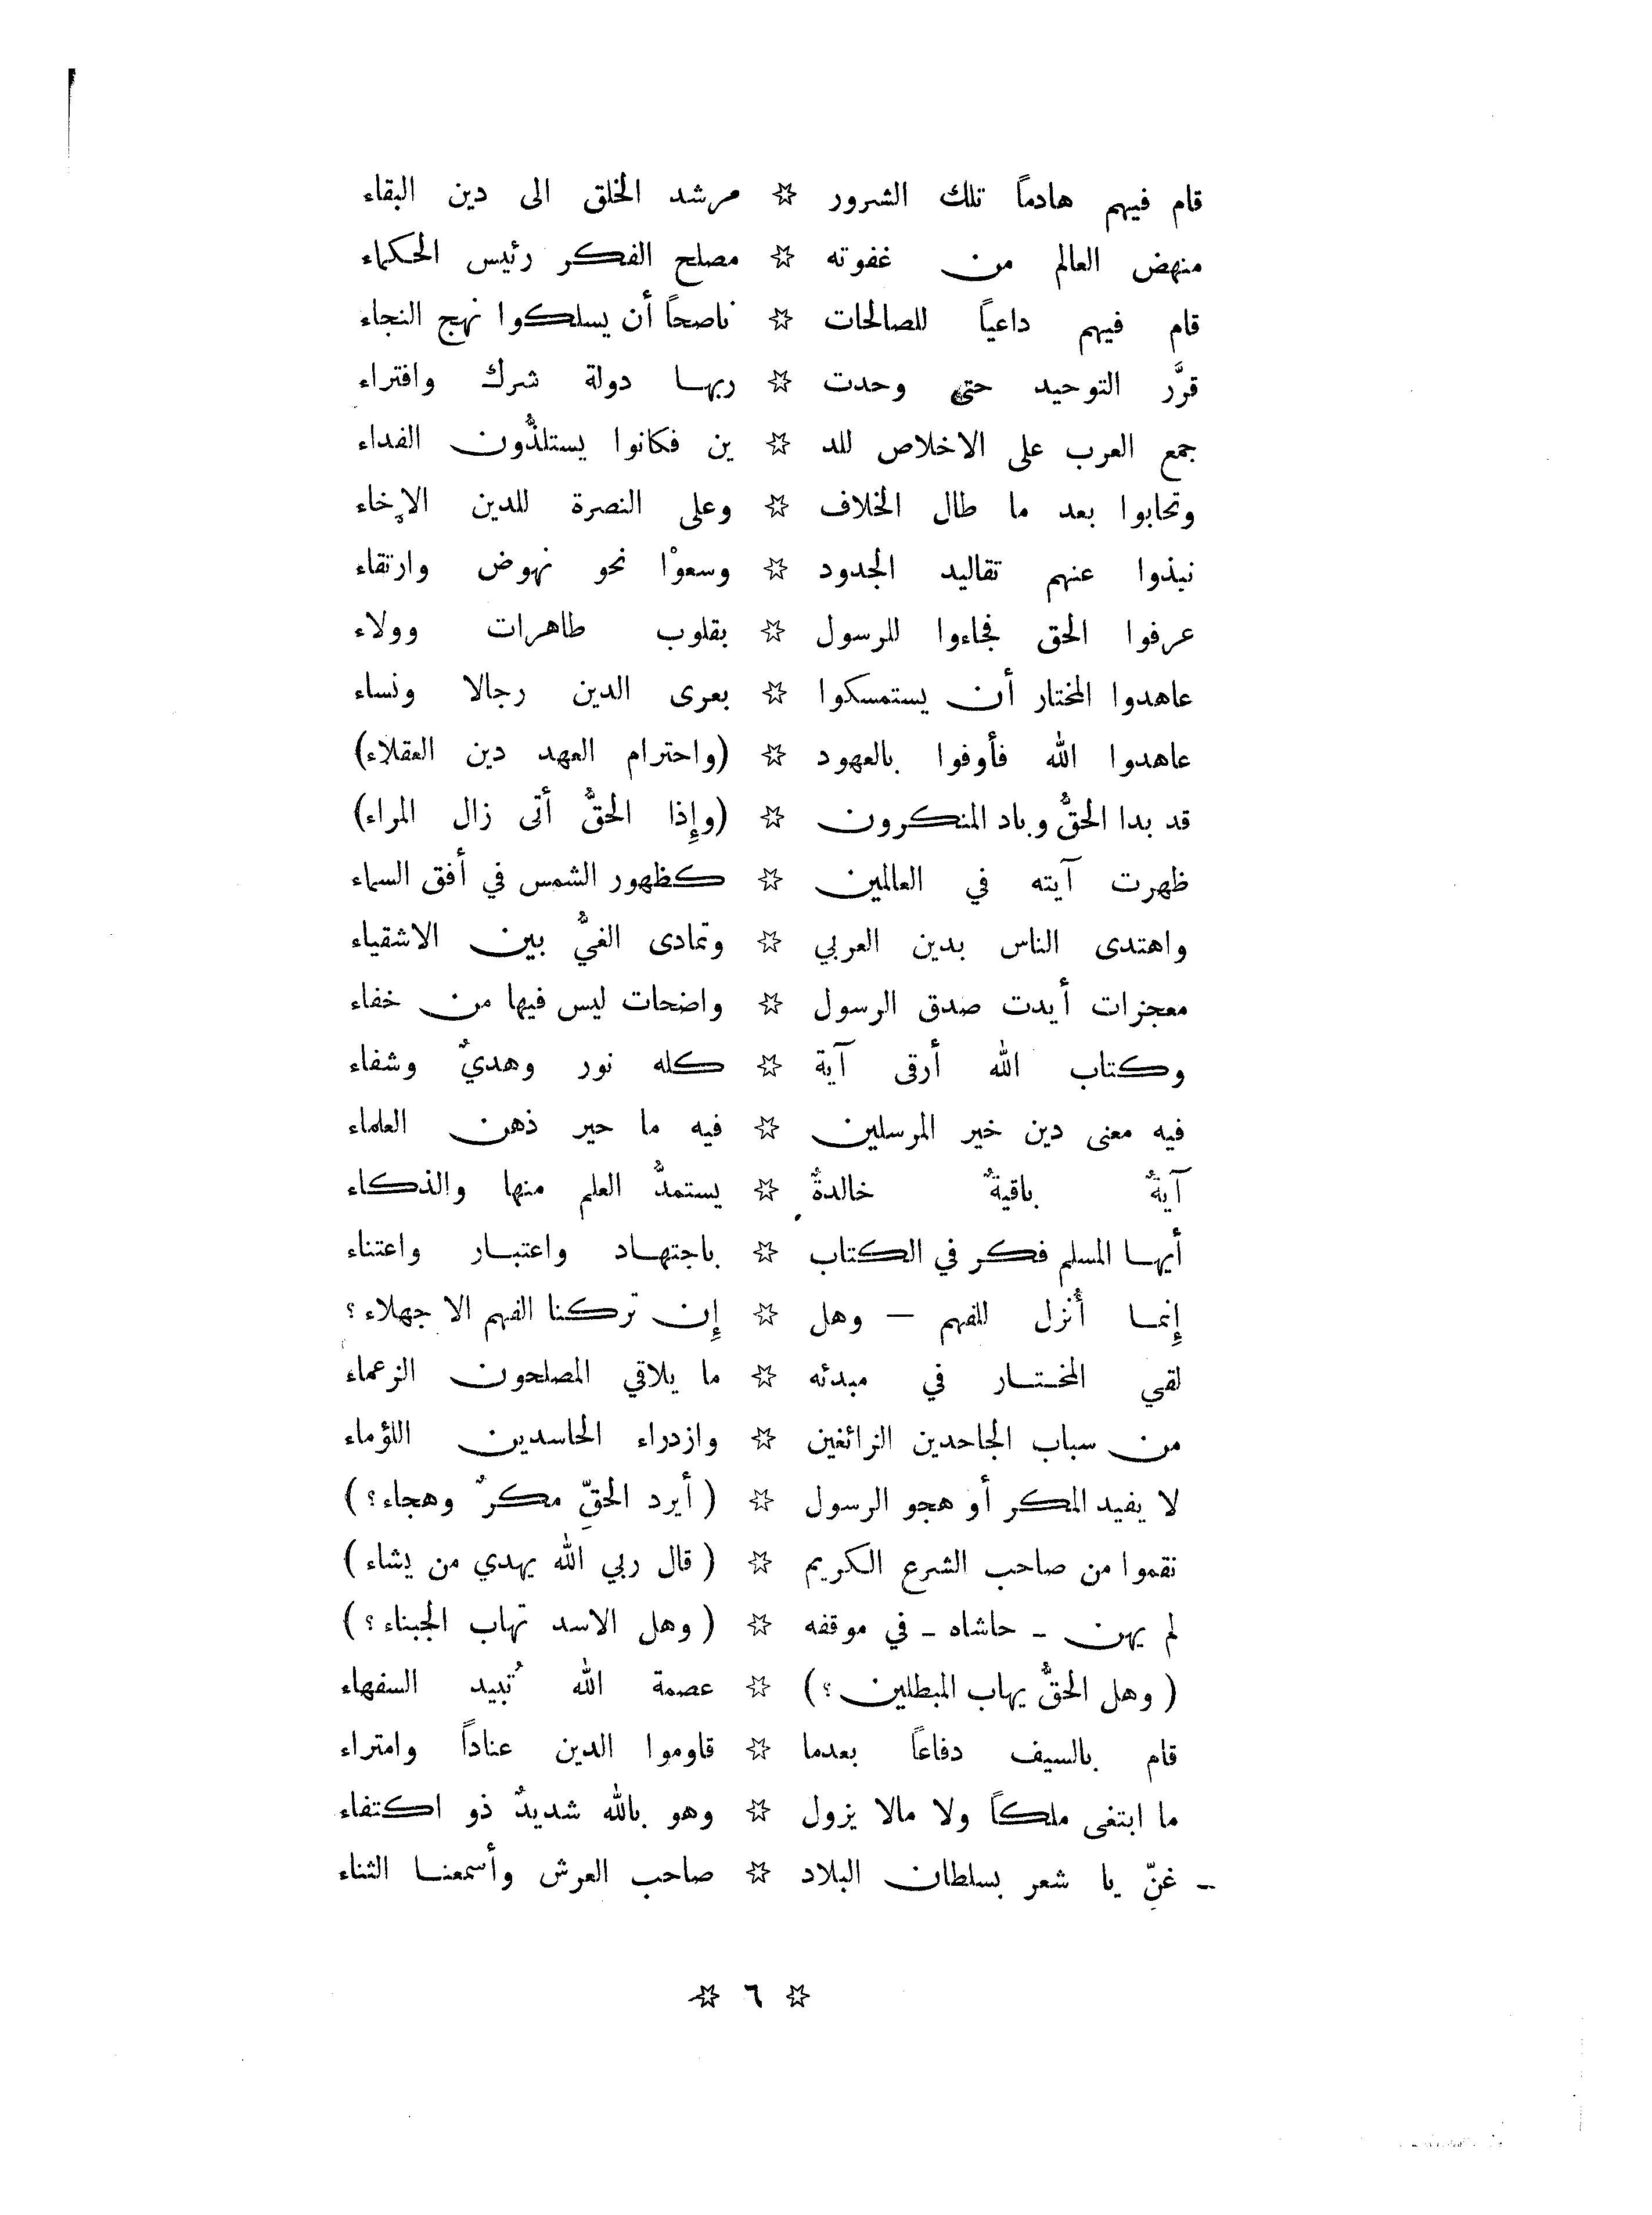 قام فيهم هادماً تلك الشرور ☆ مرشد الخلق الى دين البقاء
منهض العالم من غفوته ☆ مصلح الفكر رئيس الحكماء
قام فيهم داعياً للصالحات ☆ ناصحاً أن يسلكوا نهج النجاء
قرَّر التوحيد حتى وحدت ☆ ربها دولة شرك وافتراء
جمع العرب على الاخلاص للد ☆ ين فكانوا يستلذُّون الفداء
وتحابوا بعد ما طال الخلاف ☆ وعلى النصرة للدين الإخاء
نبذوا عنهم تقاليد الجدود ☆ وسعوْا نحو نهوض وارتقاء
عرفوا الحق فجاءوا للرسول ☆ بقلوب طاهرات وولاء
عاهدوا المختار أن يستمسكوا ☆ بعرى الدين رجالا ونساء
عاهدوا الله فأوفوا بالعهود ☆ (واحترام العهد دين العقلاء)
قد بدا الحقُّ وباد المنكرون ☆ (وإِذا الحقُّ أتى زال المراء)
ظهرت آيته في العالمين ☆ كظهور الشمس في أفق السماء
واهتدى الناس بدين العربي ☆ وتمادى الغيُّ بين الاشقياء
معجزات أيدت صدق الرسول ☆ واضحات ليس فيها من خفاء
وكتاب الله أرقى آية ☆ كله نور وهديٌ وشفاء
فيه معنى دين خير المرسلين ☆ فيه ما حير ذهن العلماء
آيةٌ باقيةٌ خالدةٌ ☆ يستمدُّ العلم منها والذكاء
أيها المسلم فكر في الكتاب ☆ باجتهاد واعتبار واعتناء
إِنما أُنزل للفهم — وهل ☆ إِن تركنا الفهم الا جهلاء؟
لقي المختار في مبدئه ☆ ما يلاقي المصلحون الزعماء
من سباب الجاحدين الزائغين ☆ وازدراء الحاسدين اللؤماء
لا يفيد المكر أو هجو الرسول ☆ (أيرد الحقِّ مكرٌ وهجاء؟)
نقموا من صاحب الشرع الكريم ☆ (قال ربي الله يهدي من يشاء)
لم يهن - حاشاه - في موقفه ☆ (وهل الاسد تهاب الجبناء؟)
(وهل الحقُّ يهاب المبطلين؟) ☆ عصمة الله تُبيد السفهاء
قام بالسيف دفاعاً بعدما ☆ قاوموا الدين عناداً وامتراء
ما ابتغى ملكاً ولا مالا يزول ☆ وهو بالله شديدٌ ذو اكتفاء
- غنِّ يا شعر بسلطان البلاد ☆ صاحب العرش وأسمعنا الثناء
☆ ٦ ☆